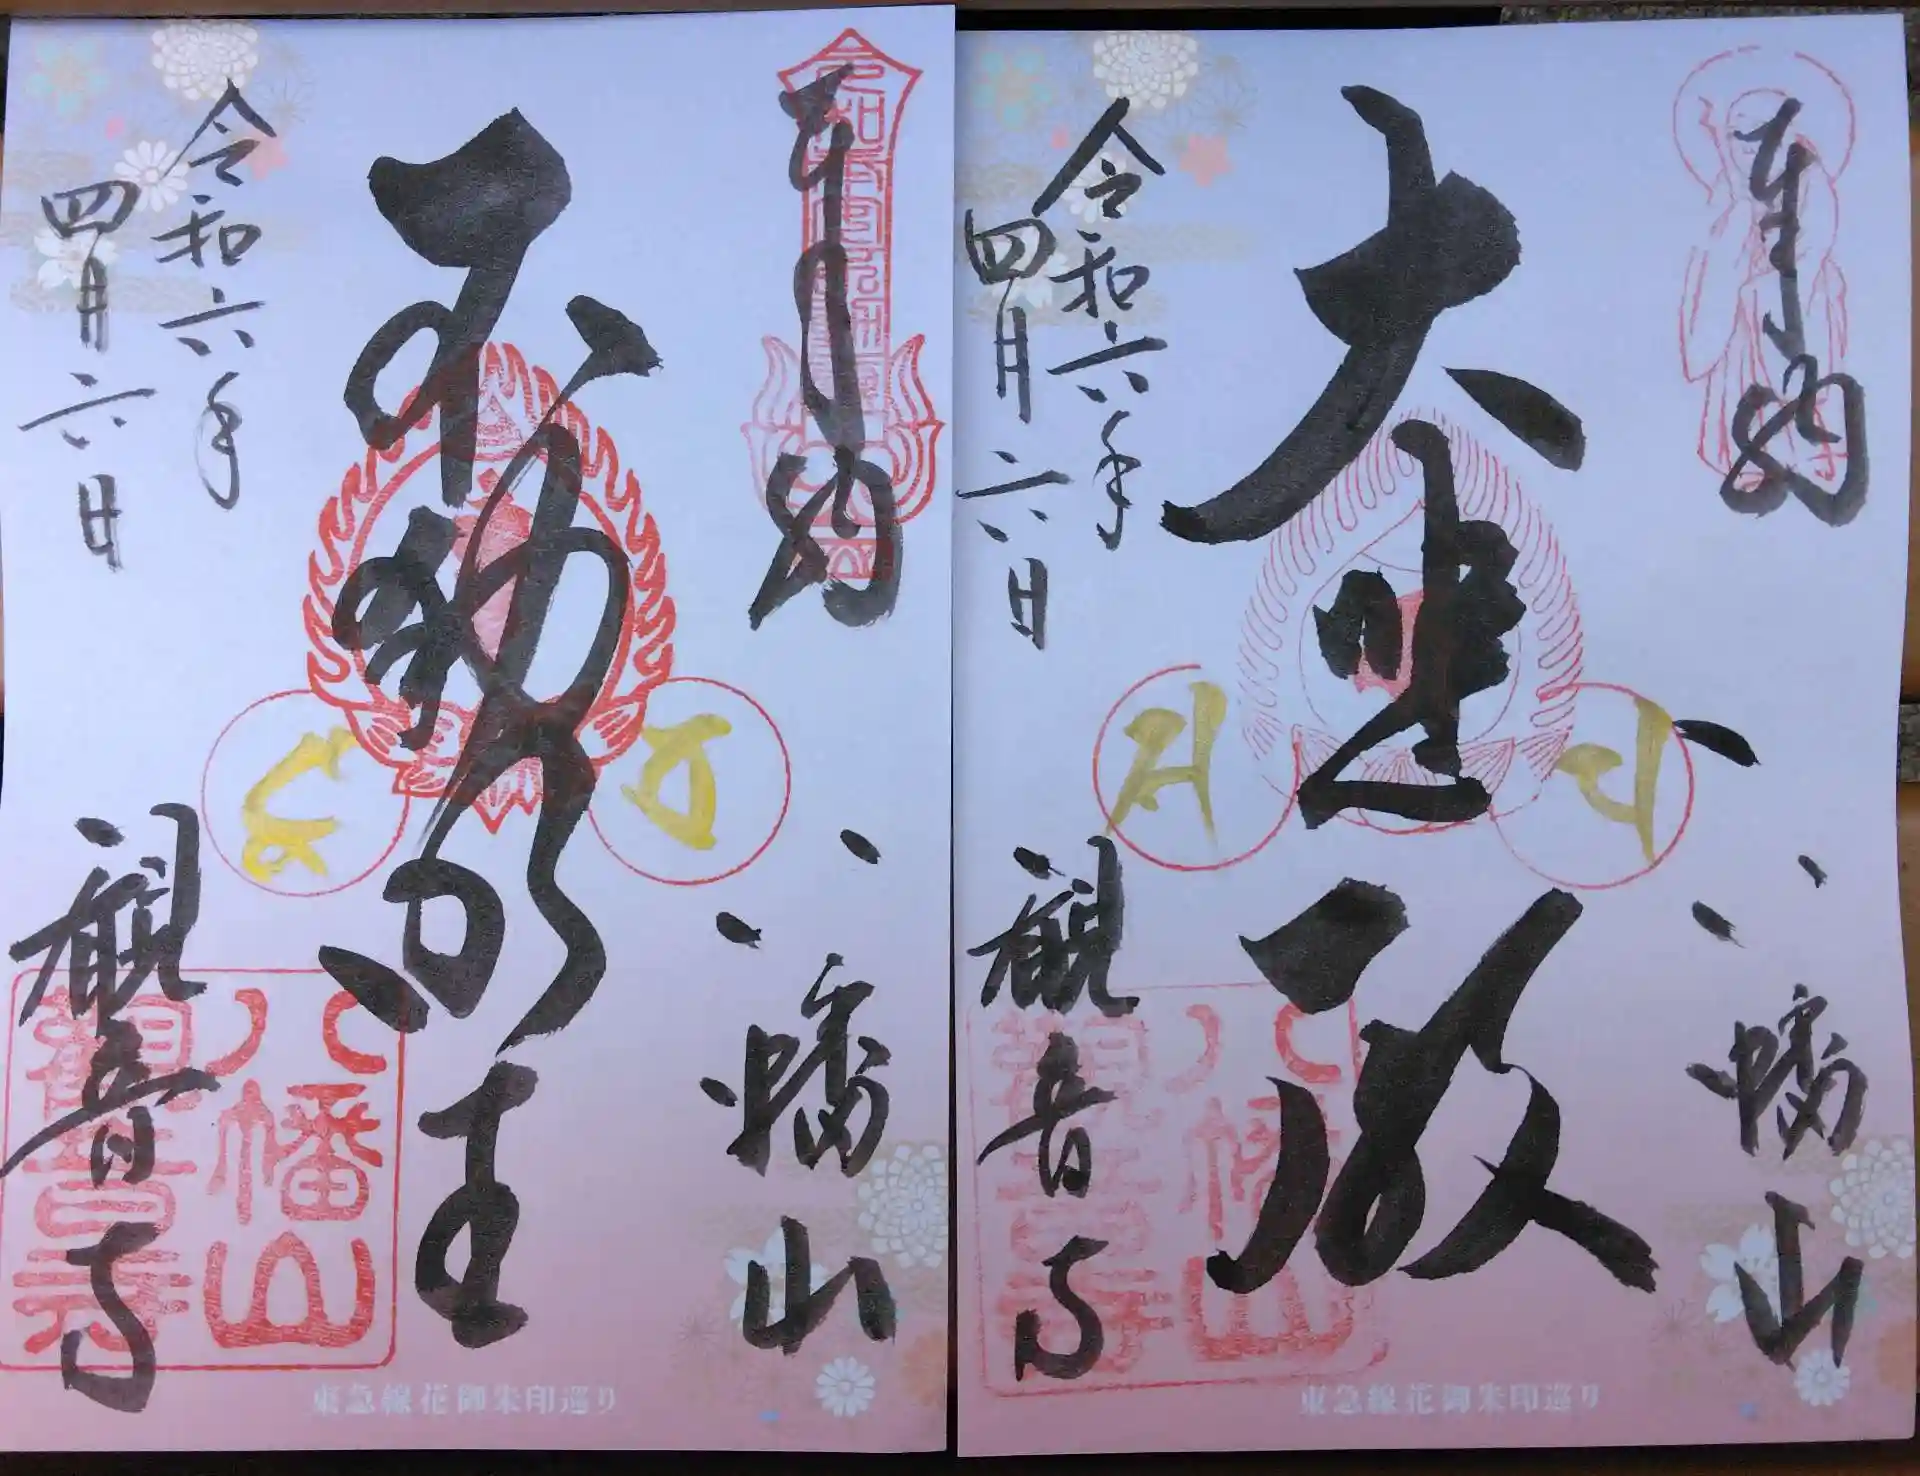 奉納
不動明王
八幡山
令和六年
四月六日
観音寺
八幡山
観音寺
東急線花御朱印巡り
奉納
大悲殿
八幡山
令和六年
四月六日
観音寺
八幡山
観音寺
東急線花御朱印巡り